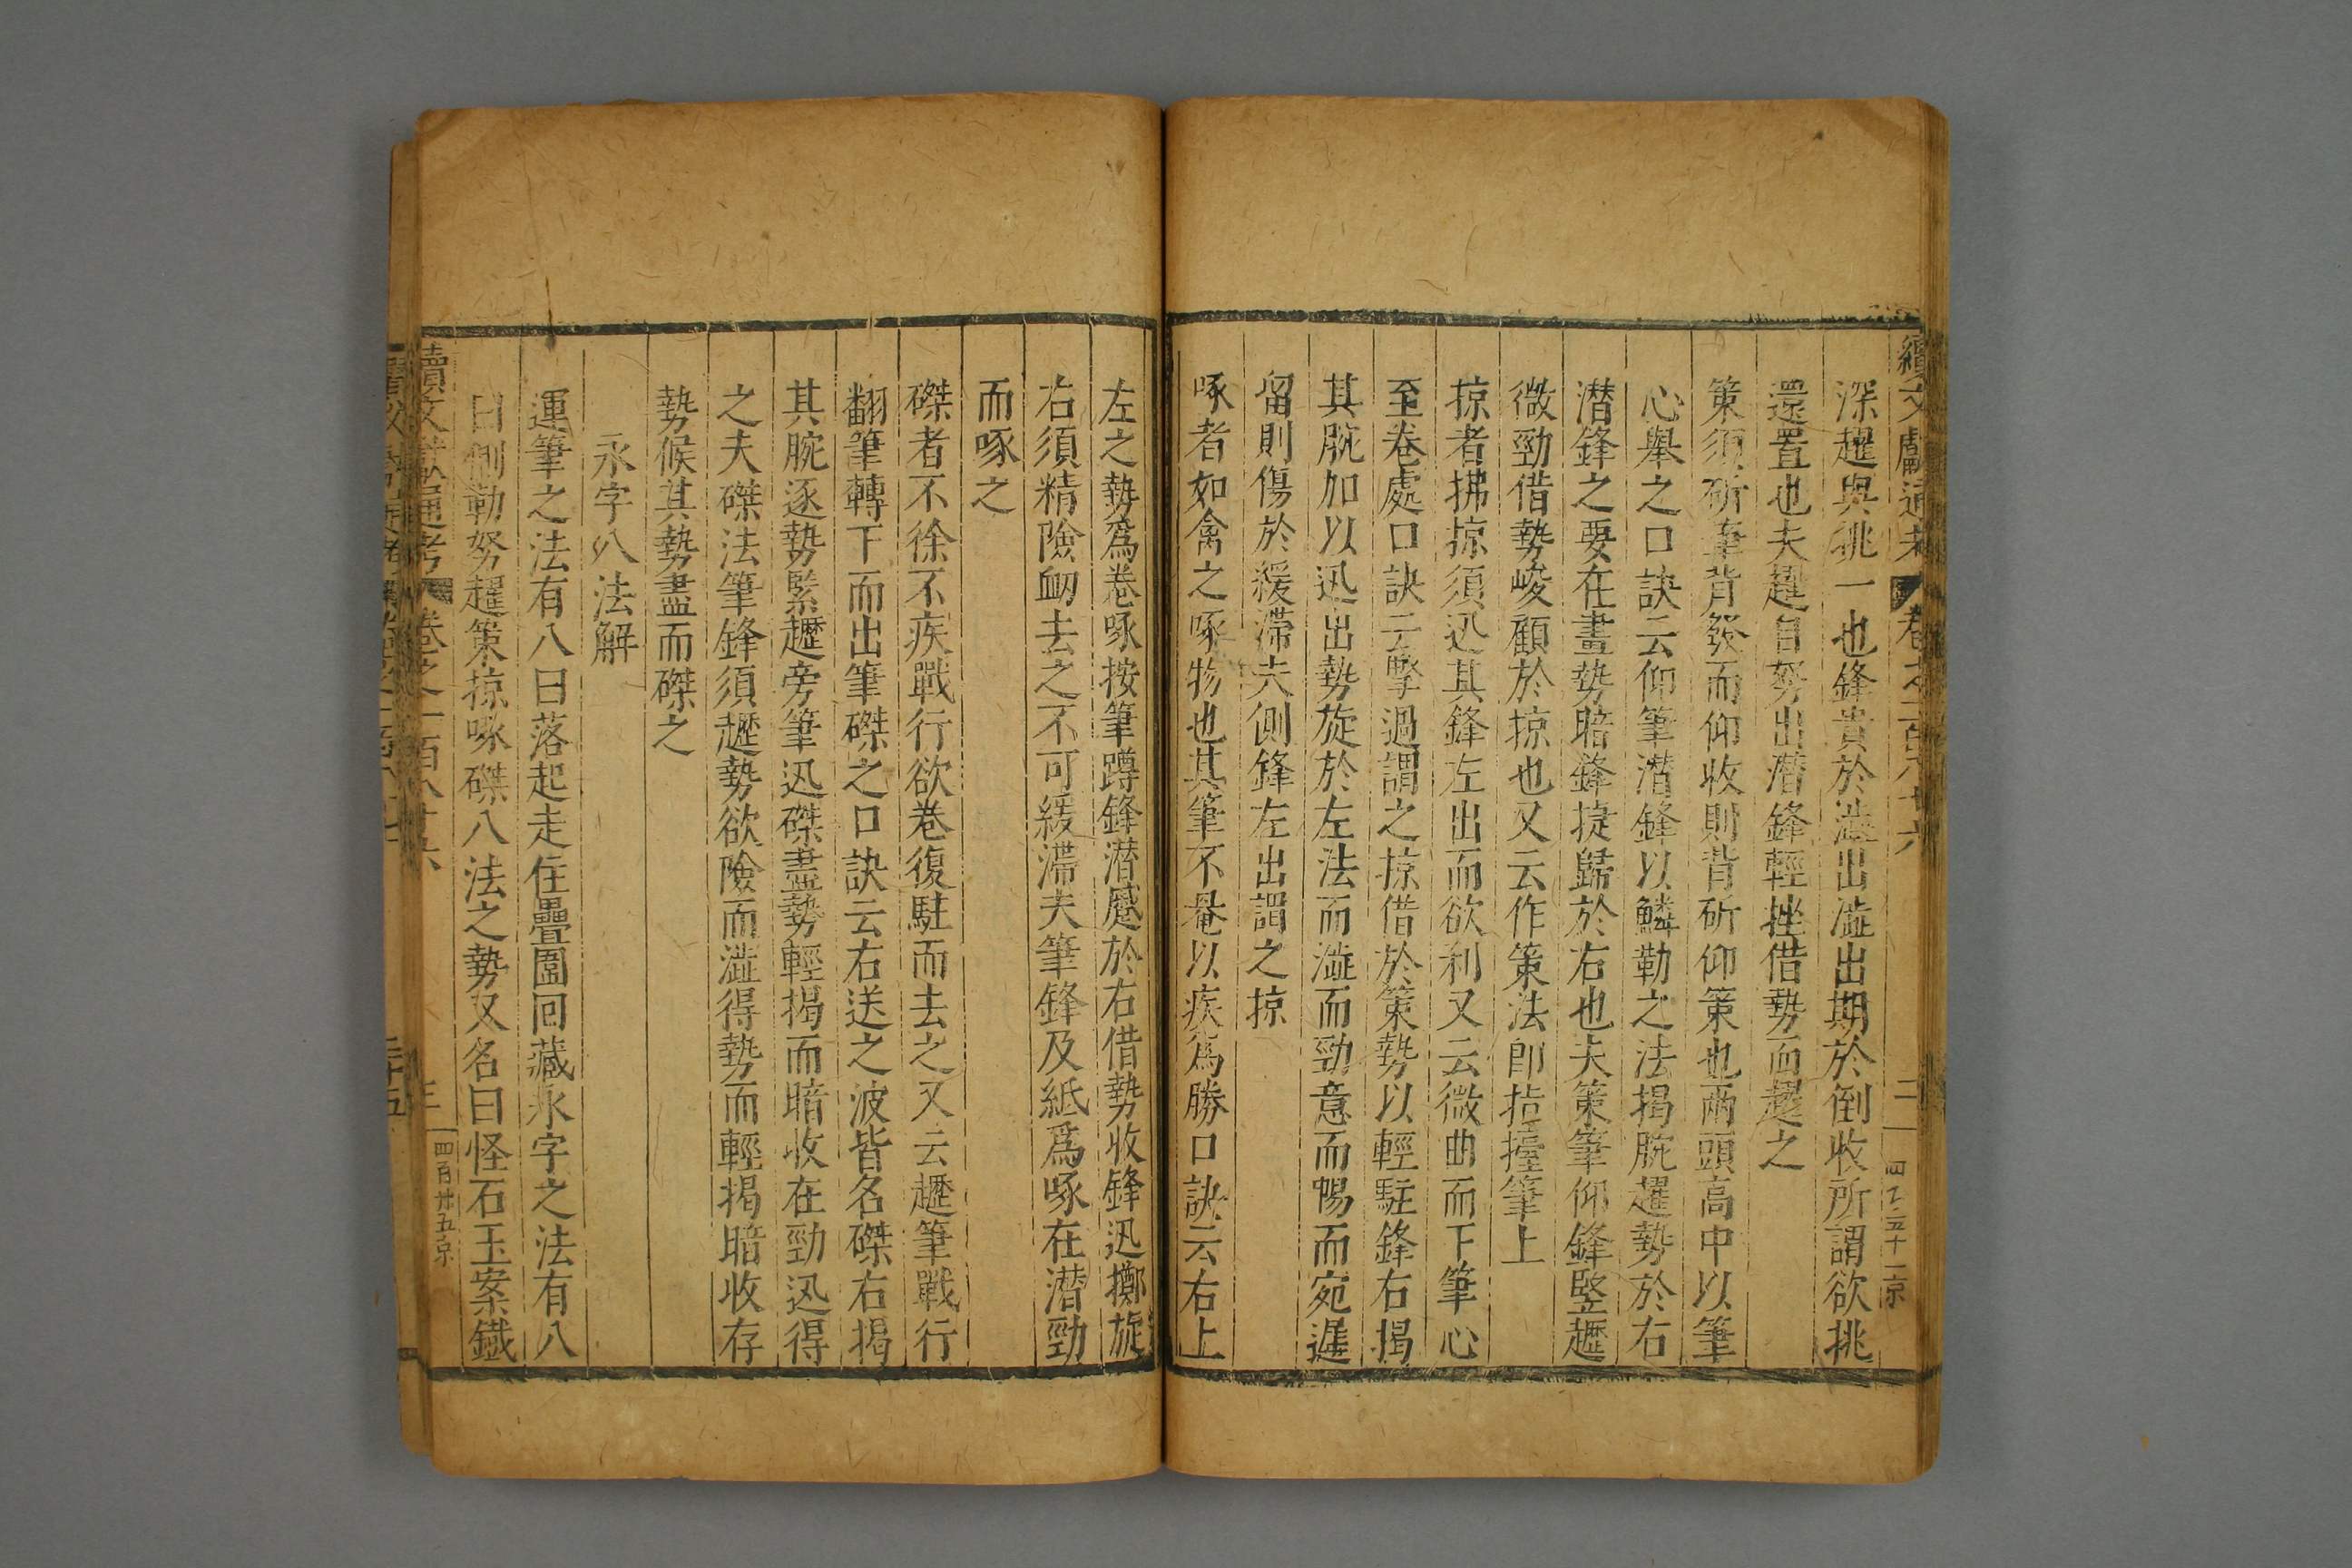 續文獻通考 卷之一百八十六 三
深趯與挑一也鋒貴於澁出澁出期於倒收所謂欲挑
還置也夫趯自努出潛鋒輕挫借勢而趯之
策須斫筆背發而仰收則背斫仰策也兩頭高中以筆
心舉之口訣云仰筆潛鋒以鱗勒之法揭腕趯勢於右
潛鋒之要在畫勢暗鋒捷歸於右也夫策筆仰鋒竪趯
微勁借勢峻顧於掠也又云作策法卽指擡筆上
掠者拂掠須迅其鋒左出而欲利又云微曲而下筆心
至卷處口訣云擎過謂之掠借於策勢以輕駐鋒右揭
其腕加以迅出勢旋於左法而澁而勁意而暢而宛遲
留則傷於緩滯夫側鋒左出謂之掠
啄者如禽之啄物也其筆不罨以疾爲勝口訣云右上
左之勢爲卷啄按筆蹲鋒潛蹙於右借勢收鋒迅擲旋
右須精險衂去之不可緩滯夫筆鋒及紙爲啄在潛勁
而啄之
磔者不徐不疾戰行欲卷復駐而去之又云趯筆戰行
翻筆轉下而出筆磔之口訣云右送之波皆名磔右揭
其腕逐勢緊趯旁筆迅磔盡勢輕揭而暗收在勁迅得
之夫磔法筆鋒須趯勢欲險而澁得勢而輕揭暗收存
勢候其勢盡而磔之
永字八法解
運筆之法有八曰落起走住疊圍回藏永字之法有八
曰側勒努趯策掠啄磔八法之勢又名曰怪石玉案鐵
續文獻通考 卷之一百八十六 三
四百卅五京